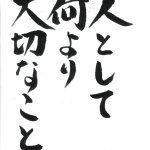 人として
何より
大切なこと